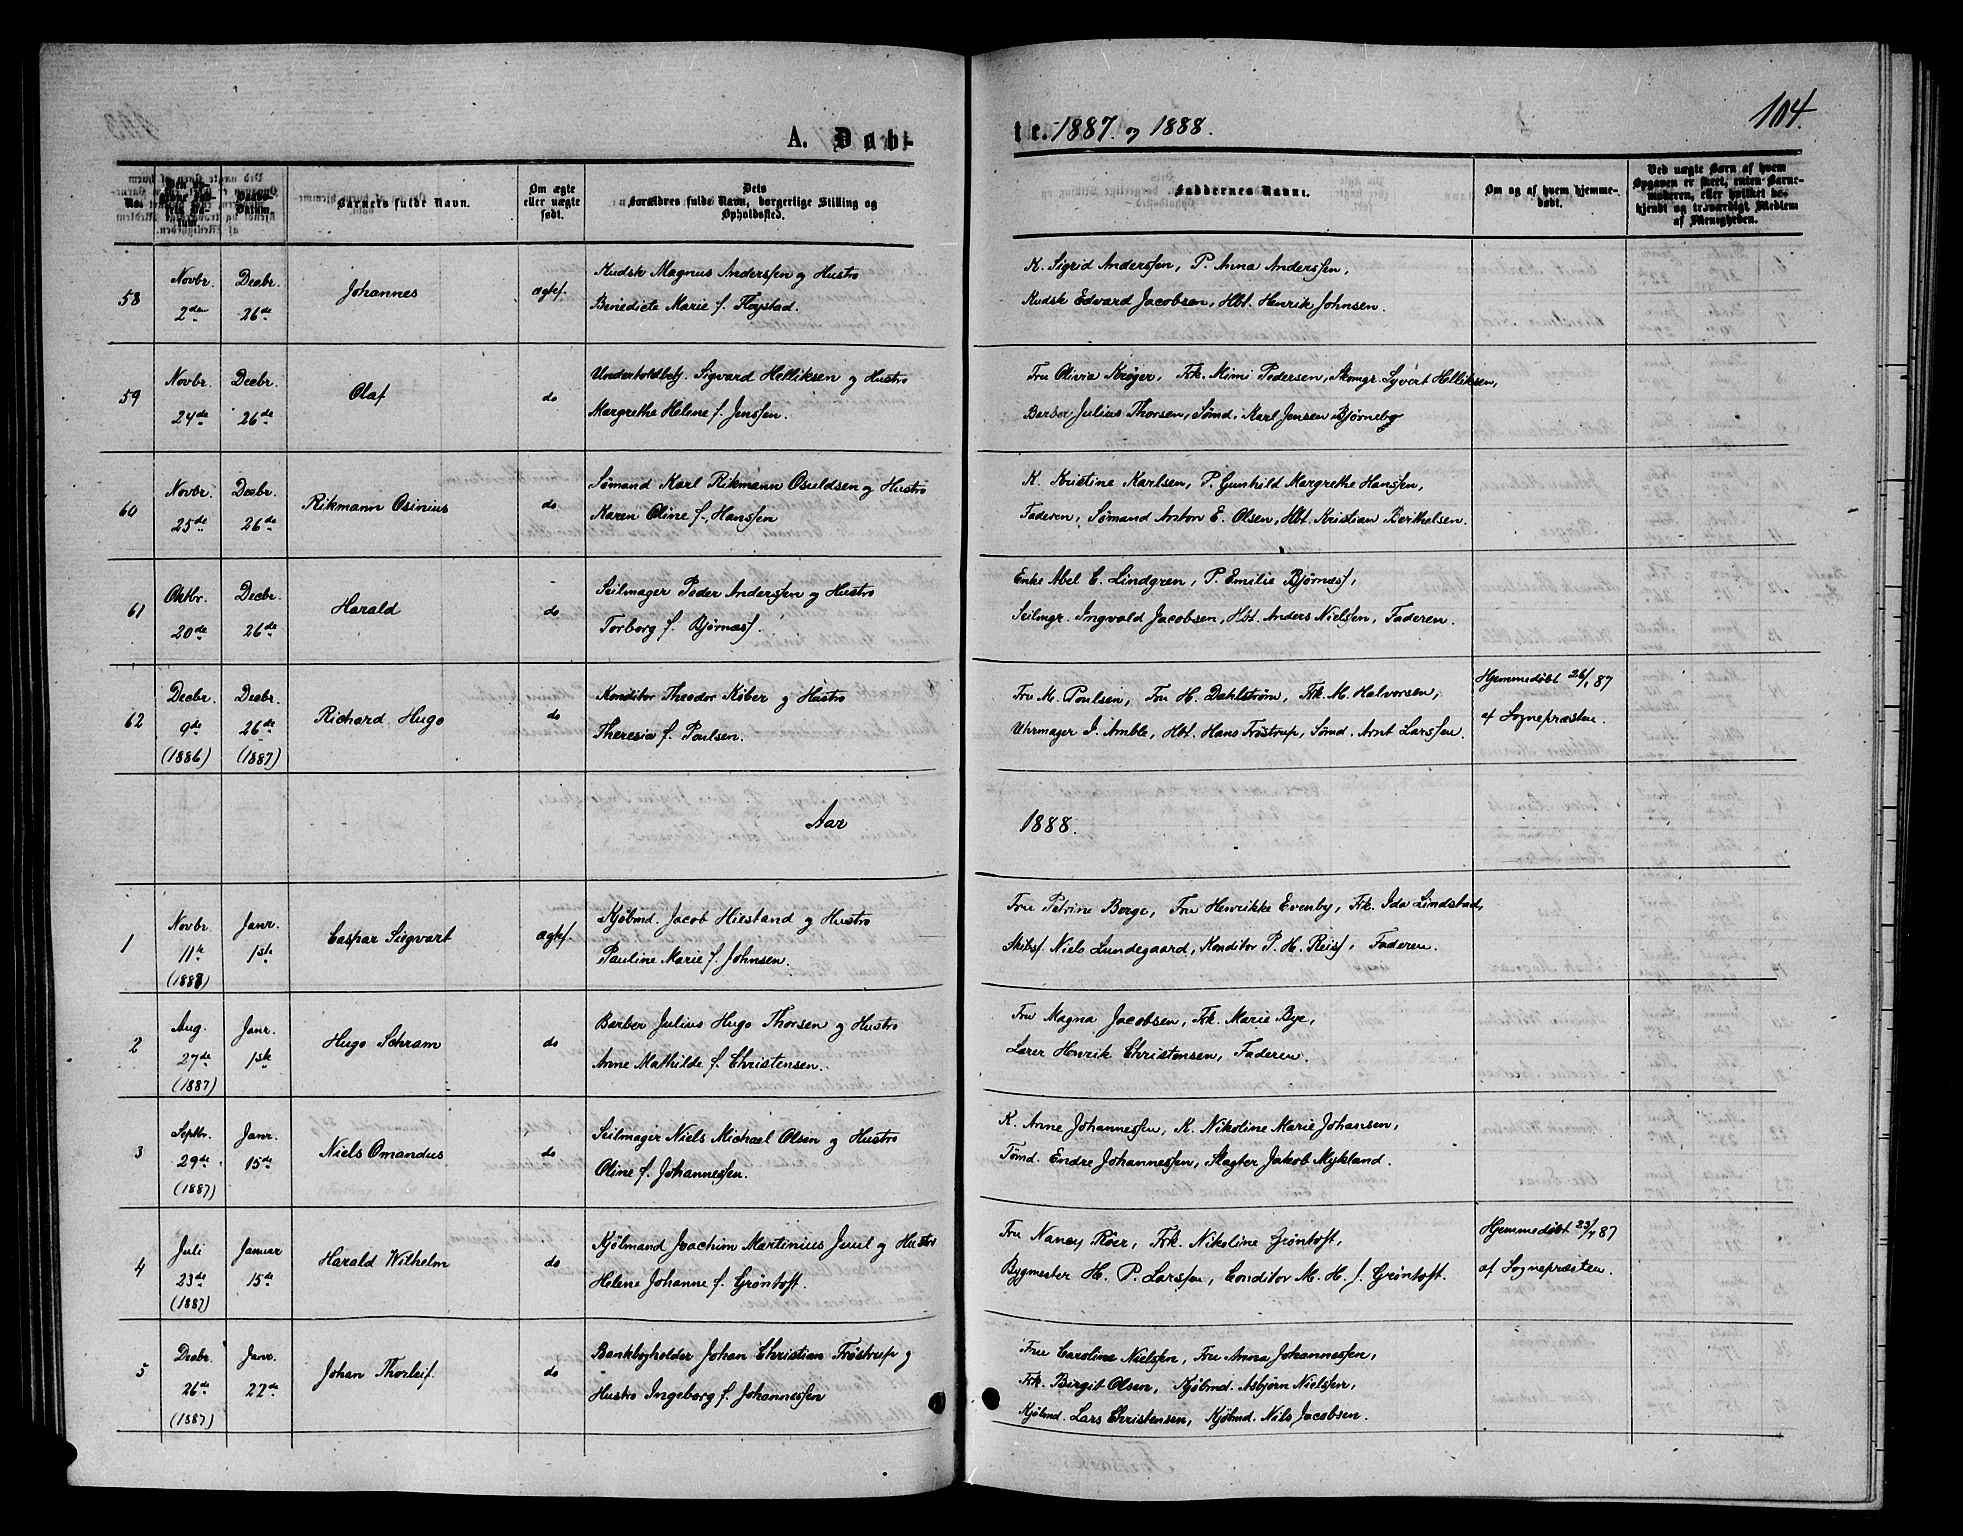 104.
A. Døbte. 1887. og 1888.
No.
Den opgivne Fødsels Datum.
Daabs-Datum.
Barnets fulde Navn.
Om ægte eller uægte født.
Dets Forældres fulde Navn, borgerlige Stilling og Opholdssted.
Faddernes Navne.
Om og af hvem hjemmedøbt.
Ved uægte Børn af hvem Opgaven er skeet, enten Barnemoderen, eller hvilket bekjendt og troværdigt Medlem af Menigheden.
58
Novbr. 2den
Decbr. 26de
Johannes
ægtef.
Kudsk Magnus Anderssen og Hustro
Benedicte Marie f. Fløystad.
K. Sigrid Anderssen, P. Anna Anderssen,
Kudsk Edvard Jacobsen, Hbt. Henrik Johnsen.
59
Novbr. 24de
Decbr. 26de
Olaf
do
Underholdbetj. Sigvard Helliksen og Hustro
Margrethe Helene f. Jenssen.
Fru Olivia Krøger, Frk. Mimi Pedersen, Skomgr Syvert Helliksen,
Barber Julius Thorsen, Sømd. Karl Jensen Bjørnebo
60
Novbr. 25de
Decbr. 26de
Rikmann Osinius
do
Sømand Karl Rikmann Osuldsen og Hustro
Karen Oline f. Hanssen
K. Kristine Karlsen, P. Gunhild Margrethe Hanssen,
Faderen, Sømand Anton E. Olsen, Hbt. Kristian Berthelsen.
61
Oktbr. 20de
Decbr. 26de
Harald
do
Seilmager Peder Anderssen og Hustro
Torborg f. Bjørnæss.
Enke Abel C. Lindgren, P. Emilie Bjørnæss,
Seilmgr. Ingvald Jacobsen, Hbt. Anders Nielssen, Faderen.
62
Decbr. 9de (1886)
Decbr. 26de (1887)
Richard Hugo
do
Konditor Theodor Køber og Hustro
Theresia f. Poulsen.
Fru M. Poulsen, Fru H. Dahlstrøm, Frk. M. Halvorsen,
Uhrmager J. Amble, Hbt. Hans Frøstrup, Sømd. Arnt Larssen.
Hjemmedøbt 26/1 87
af Sognepræsten.
Aar 1888.
1
Novbr. 11te
Janr. 1ste
Caspar Siegvart
ægtef.
Kjøbmd. Jacob Hiestand og Hustro
Pauline Marie f. Johnsen.
Fru Petrine Berge, Fru Henrikke Evenby, Frk. Ida Lindstad,
Skibsf. Niels Lundegaard, Konditor P. H. Reiss, Faderen.
2
Aug. 27de (1887)
Janr. 1ste
Hugo Schram
do
Barber Julius Hugo Thorsen og Hustro
Anne Mathilde f. Christensen.
Fru Magna Jacobsen, Frk. Marie Bye,
Lærer Henrik Christensen, Faderen.
3
Septbr. 29de (1887)
Janr. 15de
Niels Omandus
do
Seilmager Niels Michael Olsen og Hustro
Oline f. Johannessen.
K. Anne Johannessen, K. Nikoline Marie Johansen,
Tømd. Endre Johannessen, Slagter Jakob Mykland.
4
Juli 23de (1887)
Januar 15de
Harald Wilhelm
do
Kjøbmand Joachim Martinius Juul og Hustro
Helene Johanne f. Grøntoft.
Fru Nancy Röer, Frk. Nikoline Grøntoft,
Bygmester H. P. Larssen, Conditor M. H. f. Grøntoft.
Hjemmedøbt 23/7 87
af Sognepræsten.
5
Decbr. 26de (1887)
Janr. 22de
Johan Thorleif.
do
Bankbogholder Johan Christian Frøstrup og
Hustro Ingeborg f. Johannessen
Fru Caroline Nielssen, Fru Anna Johannessen,
Frk. Birgit Olsen, Kjøbmd. Asbjørn Nielssen,
Kjøbmd. Lars Christensen, Kjøbmd. Nils Jacobsen.